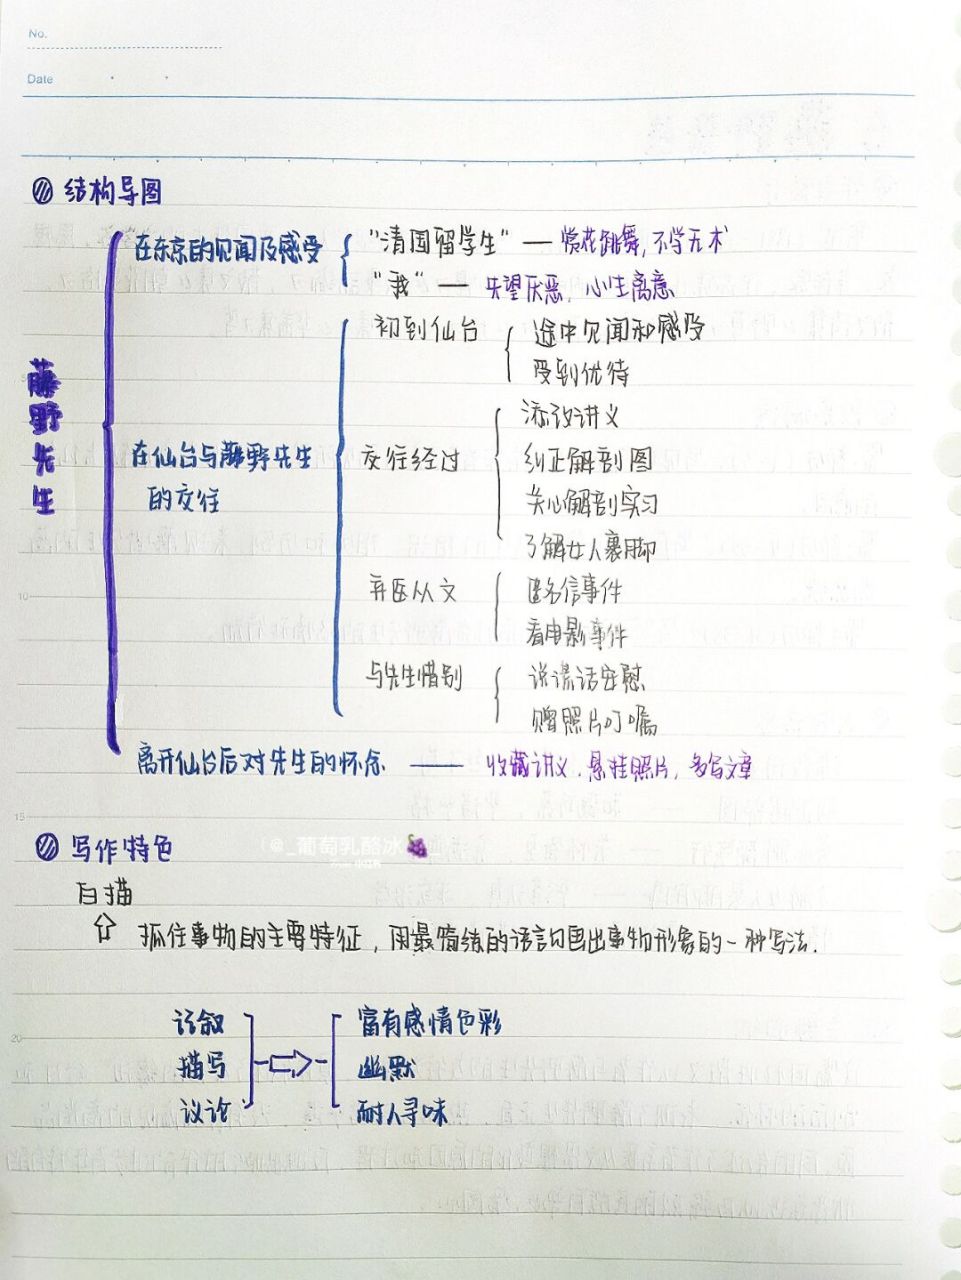 No.
Date
结构导图
在东京的见闻及感受
"清国留学生" — 赏花跳舞,不学无术
"我" — 失望厌恶,心生离意
藤野先生
在仙台与藤野先生
的交往
初到仙台
途中见闻和感受
受到优待
交往经过
添改讲义
纠正解剖图
关心解剖实习
了解女人裹脚
弃医从文
匿名信事件
看电影事件
与先生惜别
说谎话安慰
赠照片叮嘱
离开仙台后对先生的怀念 —— 收藏讲义,悬挂照片,多写文章
5
10
15
写作特色
@_葡萄乳酪冰
白描
抓住事物的主要特征,用最简练的语言勾画出事物形象的一种写法.
20
记叙
描写
议论
富有感情色彩
幽默
耐人寻味